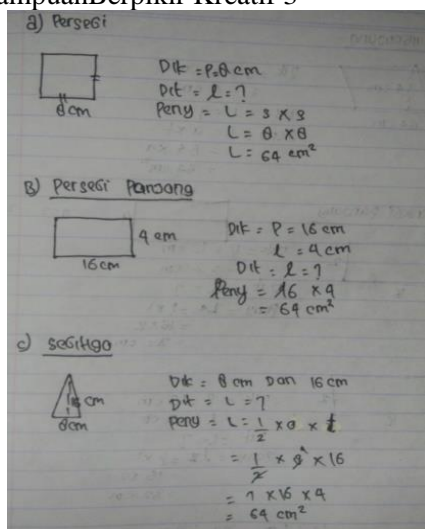 ampuanBerpikir Kreatif 3
a) Persegi
Dik = P = 8 cm
Dit = l = ?
8 cm
Peny = L = s x s
L = 8 x 8
L = 64 cm²
B) Persegi Panjang
Dik = P = 16 cm
4 cm
l = 4 cm
16 cm
Dit = l = ?
Peny = 16 x 4
= 64 cm²
c) segitiga
Dik = 8 cm Dan 16 cm
cm
Dit = L = ?
8cm
Peny = L = 1/2 x a x t
= 1/2 x 8 x 16
= 1 x 16 x 4
= 64 cm²